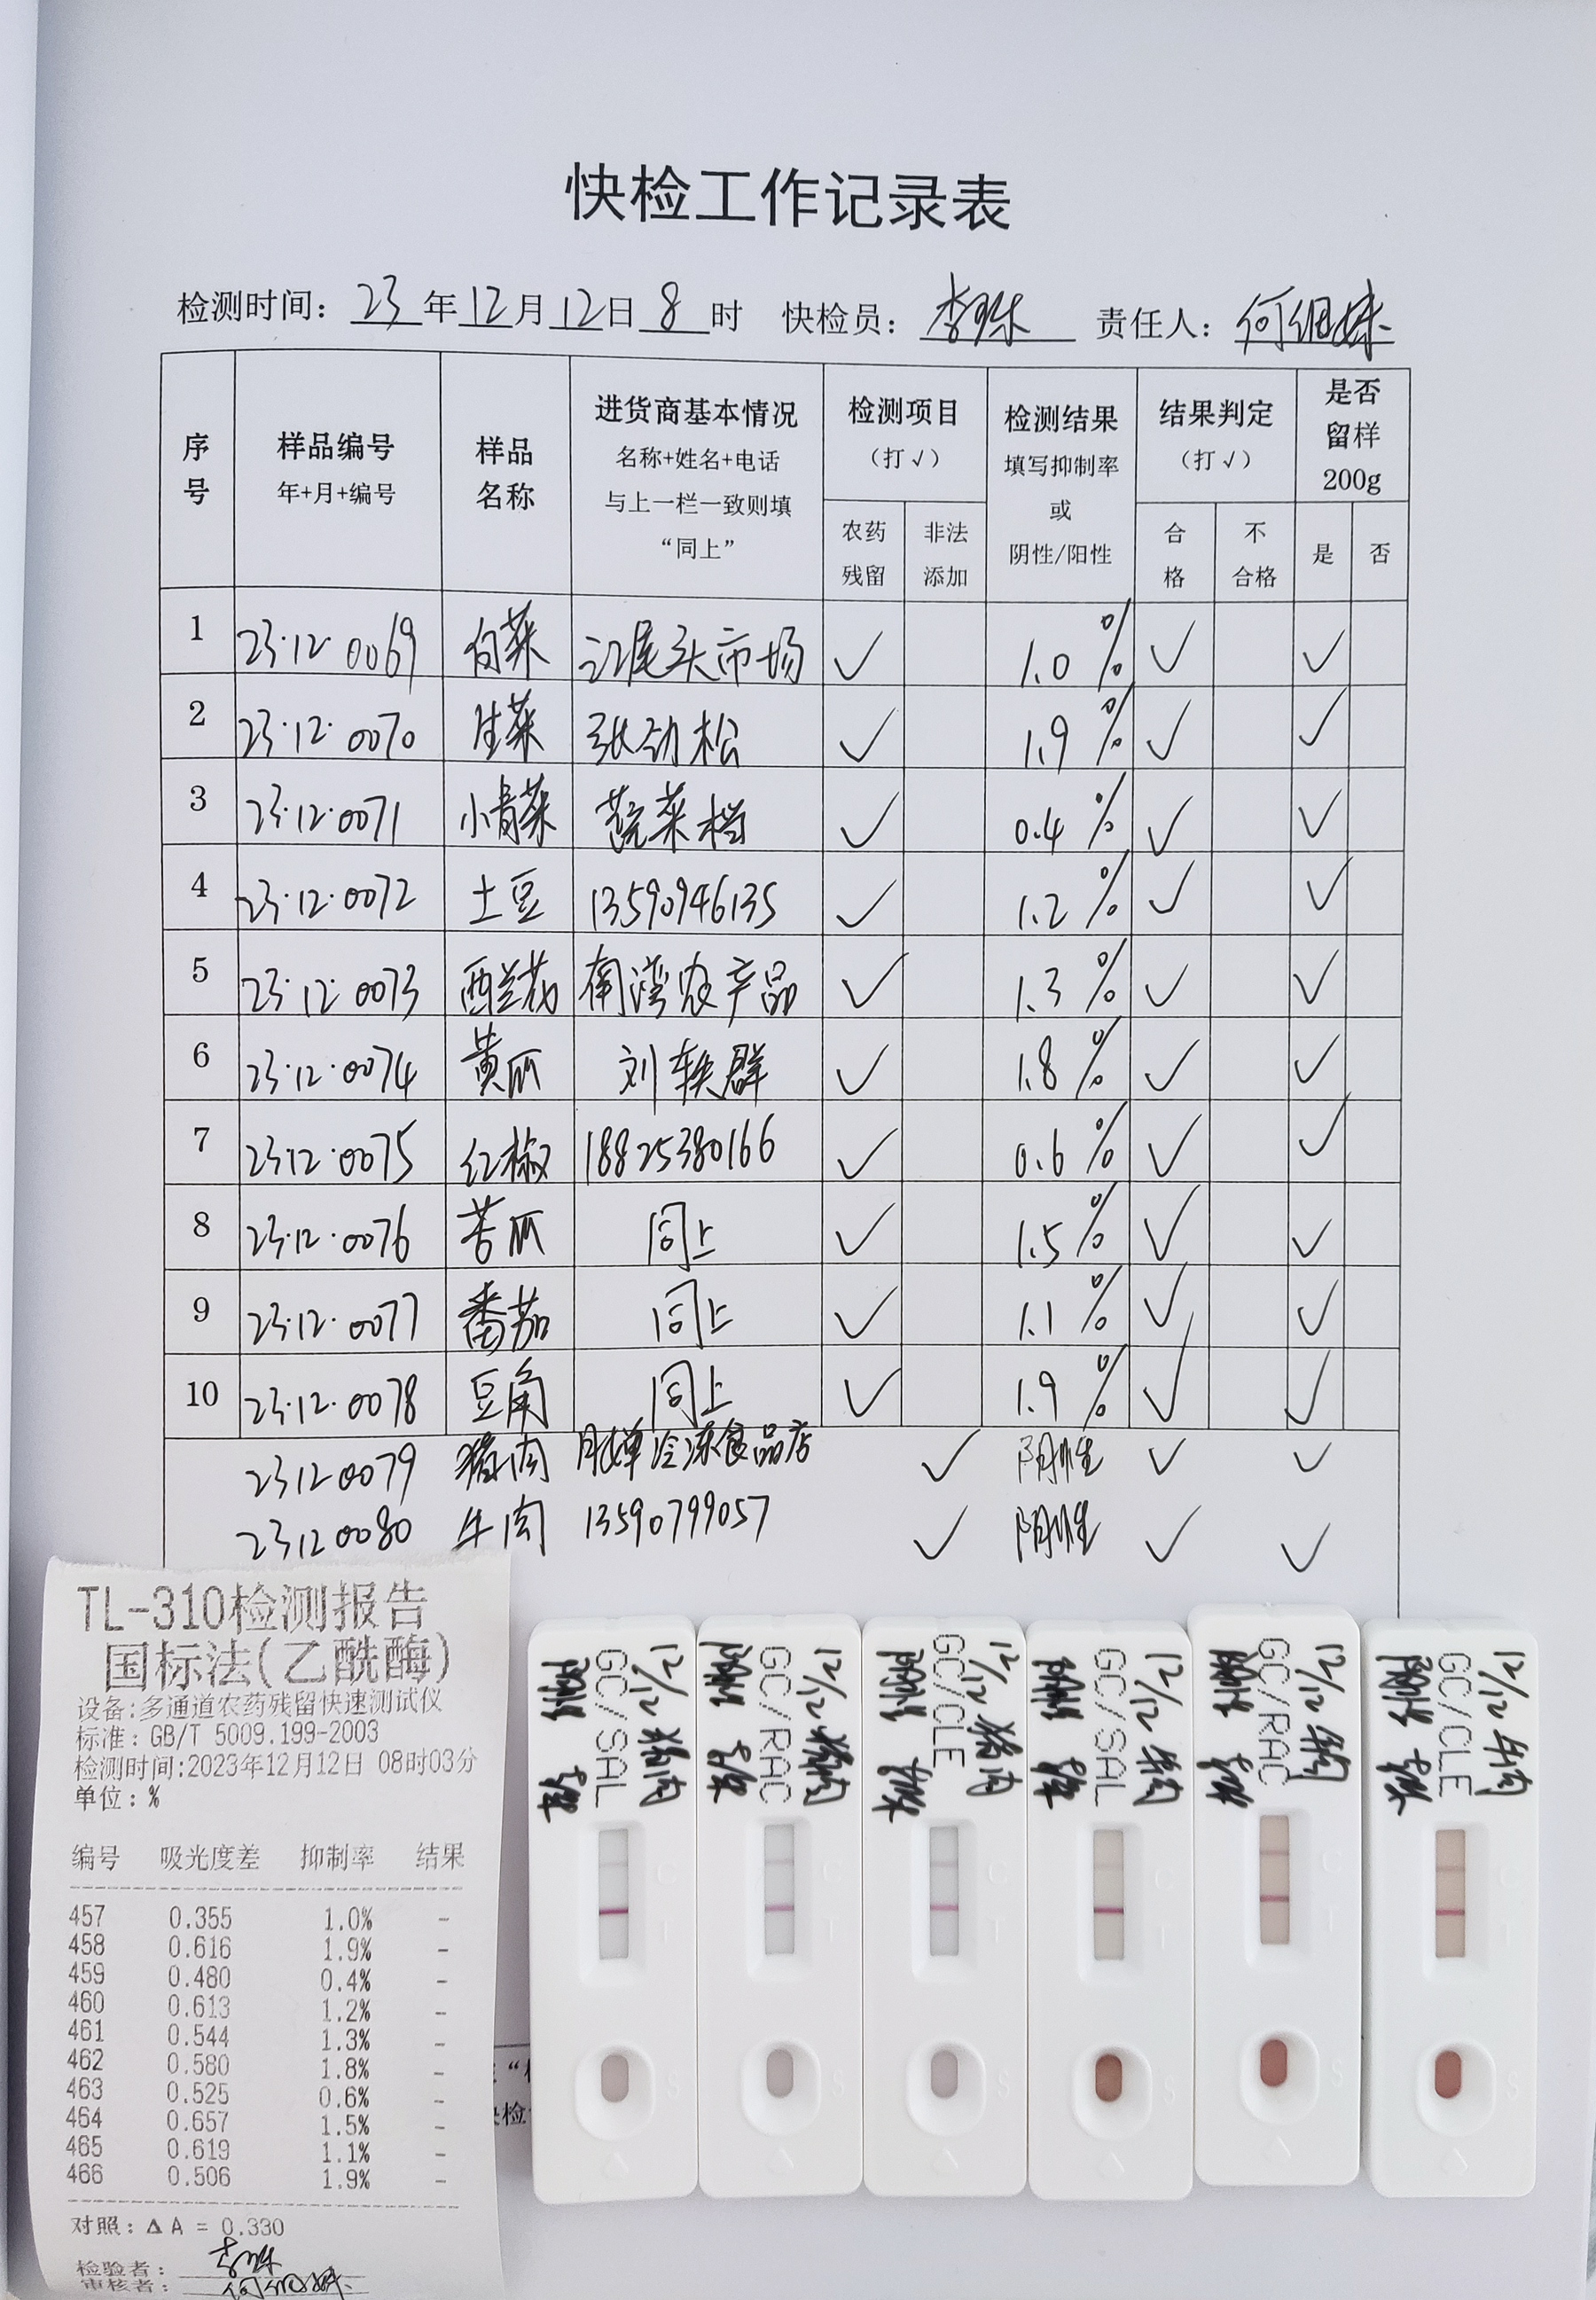 快检工作记录表
检测时间: 23 年 12 月 12 日 8 时 快检员: 李珠 责任人: 何细妹
序号 样品编号 年+月+编号 样品名称 进货商基本情况 名称+姓名+电话 与上一栏一致则填“同上” 检测项目（打√） 农药残留 非法添加 检测结果 填写抑制率或阴性/阳性 结果判定（打√） 合格 不合格 是否留样200g 是 否
1 23·12·0069 白菜 江尾头市场 √ 1.0% √ √
2 23·12·0070 生菜 张劲松 √ 1.9% √ √
3 23·12·0071 小青菜 蔬菜档 √ 0.4% √ √
4 23·12·0072 土豆 13590946135 √ 1.2% √ √
5 23·12·0073 西兰花 南湾农产品 √ 1.3% √ √
6 23·12·0074 黄瓜 刘轶群 √ 1.8% √ √
7 23·12·0075 红椒 18825380166 √ 0.6% √ √
8 23·12·0076 苦瓜 同上 √ 1.5% √ √
9 23·12·0077 番茄 同上 √ 1.1% √ √
10 23·12·0078 豆角 同上 √ 1.9% √ √
23120079 猪肉 冷冻食品店 √ 阴性 √ √
23120080 牛肉 13590799057 √ 阴性 √ √
TL-310检测报告
国标法(乙酰酶)
设备:多通道农药残留快速测试仪
标准: GB/T 5009.199-2003
检测时间:2023年12月12日 08时03分
单位: %
编号 吸光度差 抑制率 结果
457 0.355 1.0% -
458 0.616 1.9% -
459 0.480 0.4% -
460 0.613 1.2% -
461 0.544 1.3% -
462 0.580 1.8% -
463 0.525 0.6% -
464 0.657 1.5% -
465 0.619 1.1% -
466 0.506 1.9% -
对照: ΔA = 0.330
检验者: 李珠
审核者: 何细妹
12/12 猪肉 GC/SAL 阴性 李珠 C T S
12/12 猪肉 GC/RAC 阴性 李珠 C T S
12/12 猪肉 GC/CLE 阴性 李珠 C T S
12/12 牛肉 GC/SAL 阴性 李珠 C T S
12/12 牛肉 GC/RAC 阴性 李珠 C T S
12/12 牛肉 GC/CLE 阴性 李珠 C T S